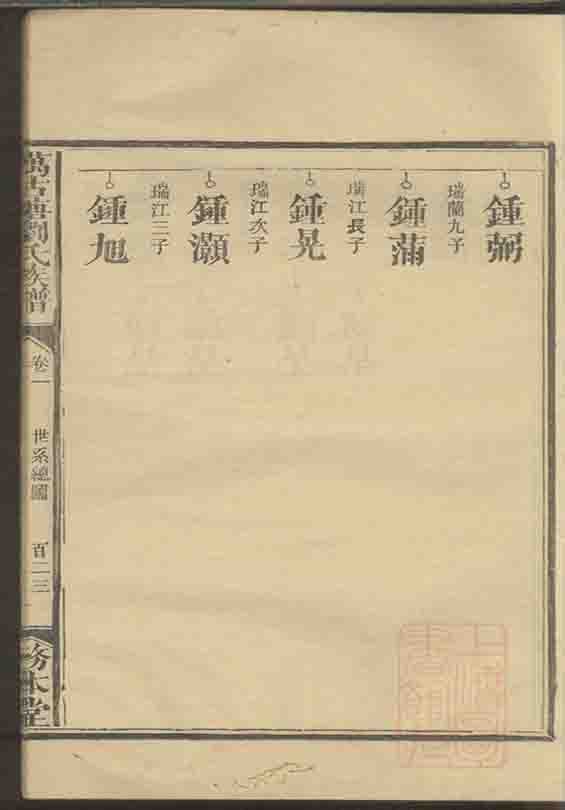 鍾弼
瑞蘭九子
鍾蒲
瑞江長子
鍾晃
瑞江次子
鍾灝
瑞江三子
鍾旭
劉氏族譜
卷一
世系總圖
百二三
務本堂